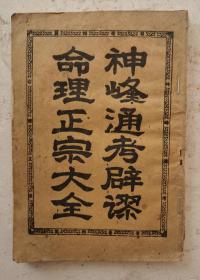 神峰通考辟謬
命理正宗大全